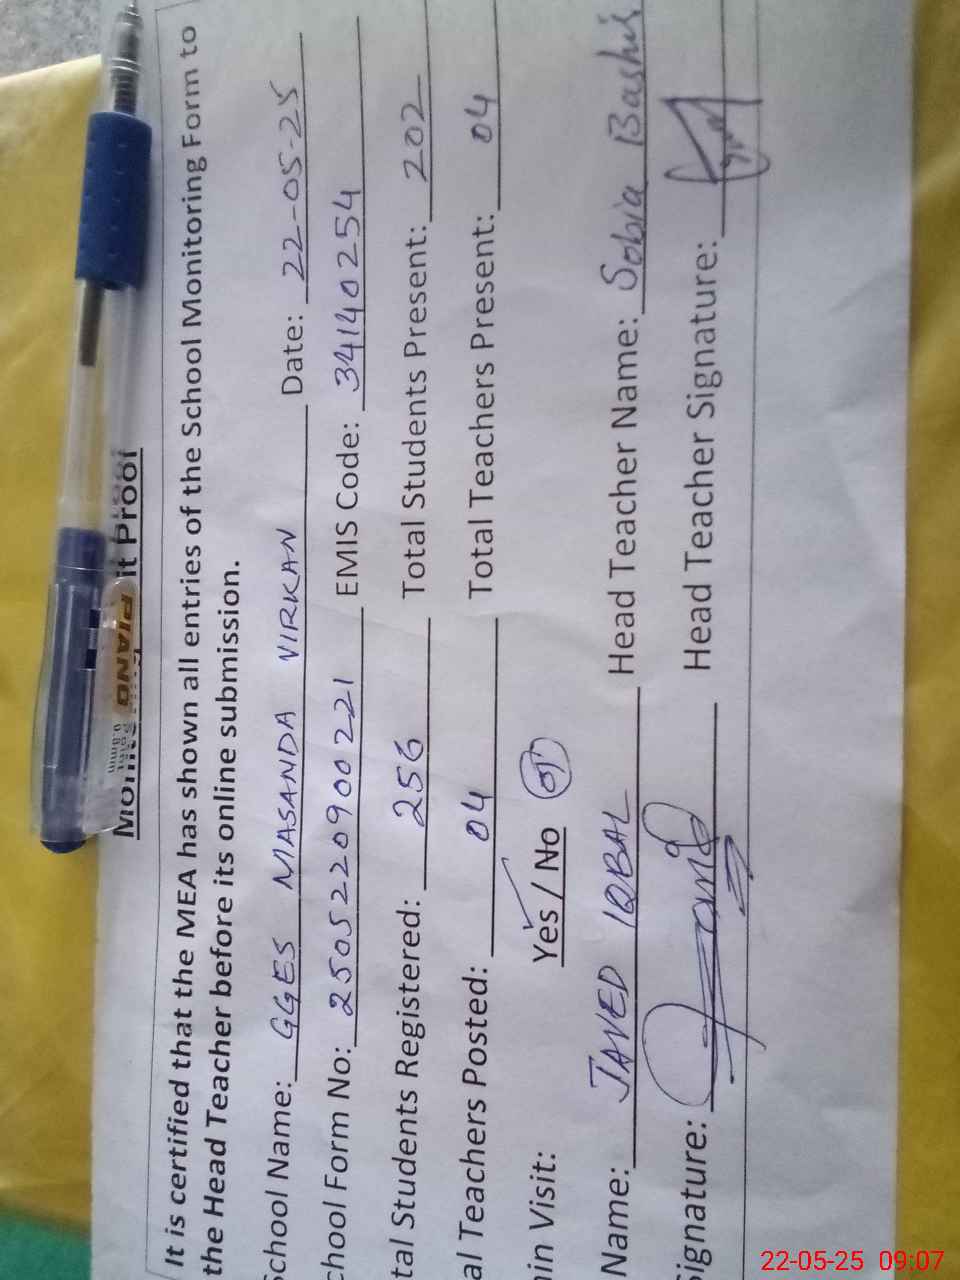 Monito it Proof
PIANO
0.8mm
It is certified that the MEA has shown all entries of the School Monitoring Form to
the Head Teacher before its online submission.
School Name: GGES MASANDA VIRKAN Date: 22-05-25
chool Form No: 2505220900221 EMIS Code: 34140254
tal Students Registered: 256 Total Students Present: 202
al Teachers Posted: 04 Total Teachers Present: 04
in Visit: Yes / No
Name: JAVED IQBAL Head Teacher Name: Sobia Bashir
Signature: Head Teacher Signature:
22-05-25 09:07